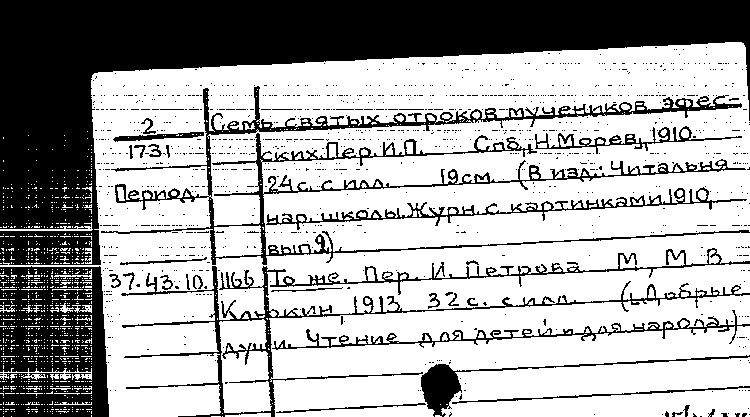 2 Семь святых отроков, мучеников эфес-
1731 ских. Пер. И.П. Спб, "Н. Морев", 1910.
Период. 24 с. с илл. 19 см. (В изд.: Читальня
нар. школы. Журн. с картинками. 1910,
вып. 2).
37.43.10. 1166 То же. Пер. И. Петрова М, М. В.
Клюкин, 1913 32 с. с илл. ("Добрые
души. Чтение для детей и для народа")